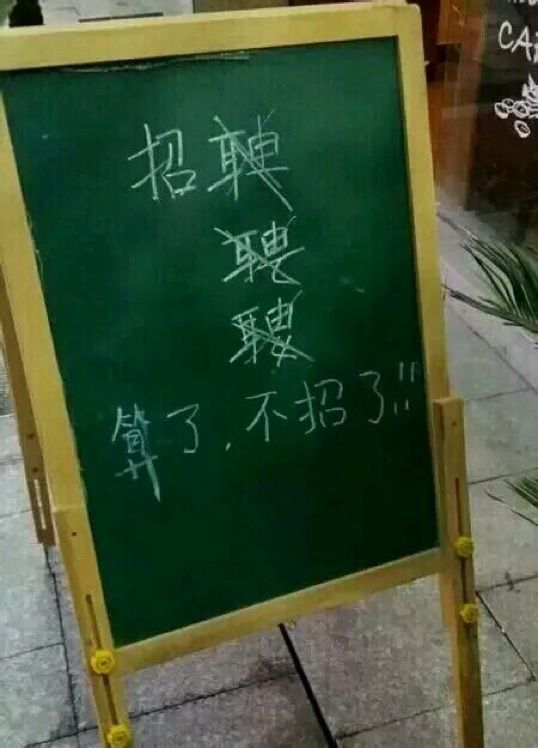 招聘
聘
聘
算了，不招了!!
CAF